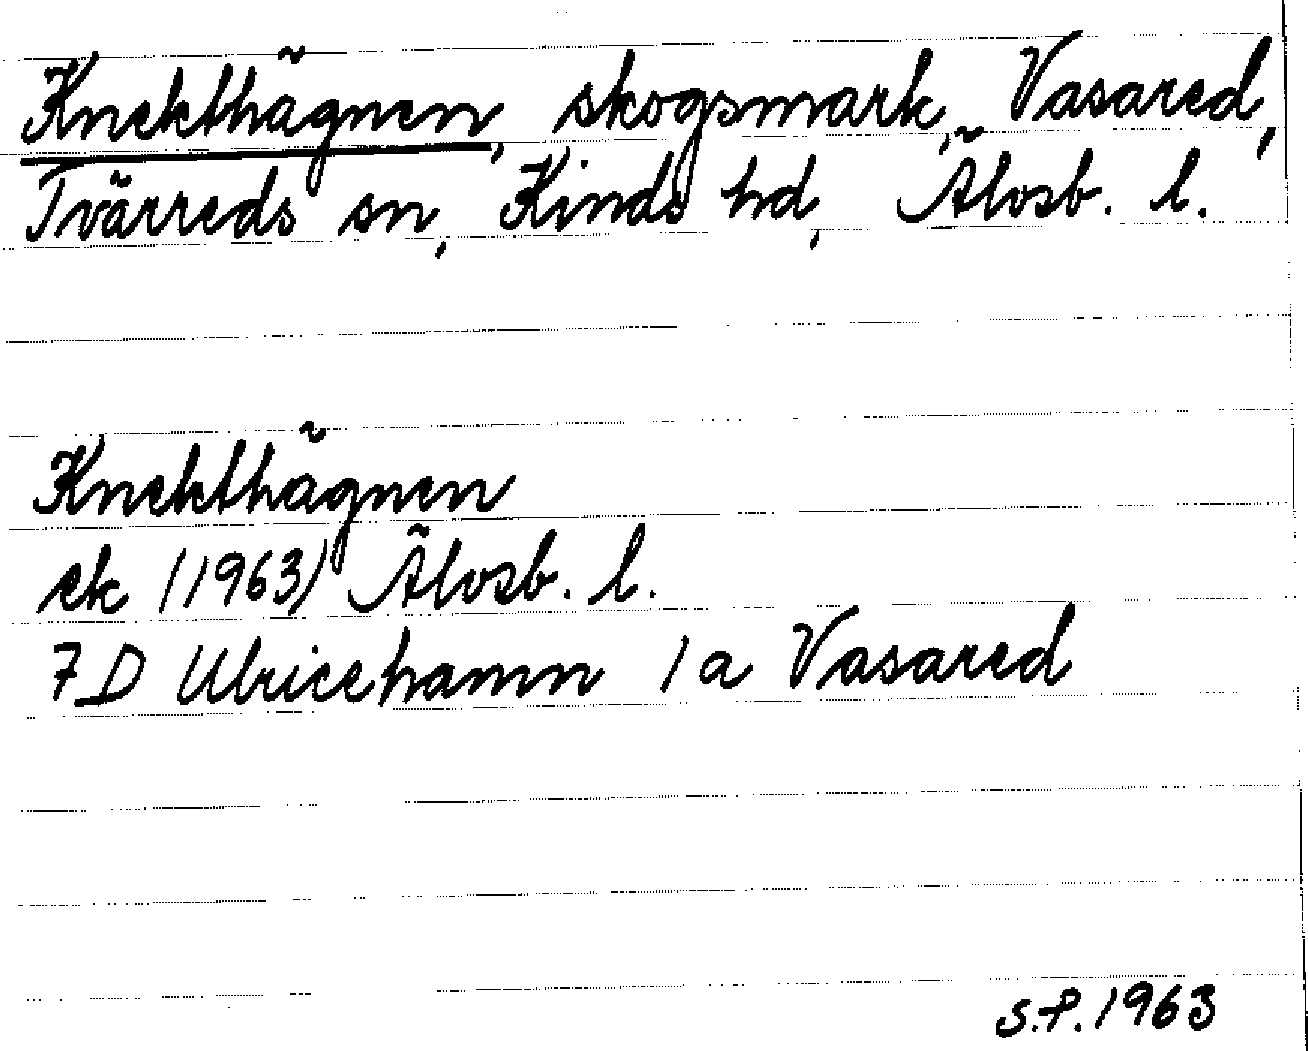 Knekthägnen, skogsmark, Vasared,
Tvärreds sn, Kinds hd, Älvsb. l.
Knekthägnen
ek (1963) Älvsb. l.
7D Ulricehamn 1a Vasared
S.P. 1963